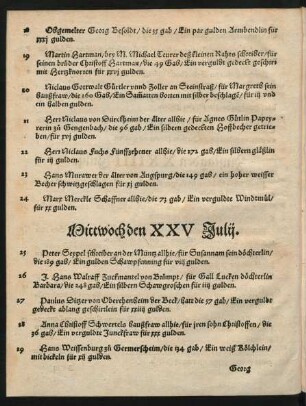 18 Obgemelter Georg Besoldt/ die 55 gab/ Ein par gulden Armbendlin für
xxxj gulden.
19 Martin Hartman/ bey M. Michael Teurer deß kleinen Rahts schreiber/ für
seinen brüder Christoff Hartman/ die 49 Gab/ Ein vergult gedeckt geschirr
mit Hertzknoren für xxvj gulden.
20 Niclaus Gottwalt Gürtler vnnd Zoller an Steinstraß/ für Margreth sein
Haußfraw/ die 160 Gab/ Ein Sammaten mit silber beschlagẽ/ für iij vnd
ein halben gulden.
21 Herr Niclaus von Dürckheim der Älter allhie/ für Agnes Ghrlin
zu Gengenbach/ die 96 gab/ Ein silbern gedeckten Hoffbecher getrie-
ben/ für xvj gulden.
22 Herr Niclaus Fuchs Fünffzehener allhie/ die 172 gab/ Ein silbern gläßlin
für iij gulden.
23 Hans Murawer der Älter von Augspurg/ die 149 gab/ ein hoher weisser
Becher schwitzgeschlagen für xj gulden.
24 Marx Merckle Schaffner allhie/ die 73 gab/ Ein verguldte Windmül/
für xx gulden.
Mittwoch den XXV Julij.
25 Peter Seypel schreiber an der Müntz allhie/ für Susannam sein döchterlin/
die 189 gab/ Ein gulden Schawpfenning für viij gulden.
26 J. Hans Walraff Zuckmantel von Brümpt/ für Gall Lucken döchterlin
Barbara/ die 248 gab/ Ein silbern Schawgroschen für iij gulden.
27 Paulus von Oberehenheim der Beck/ hatt die 57 gab/ Ein verguldt
gedeckt ablang geschirlein für xxiij gulden.
28 Anna Christoff Schwertels haußfraw allhie/ für jren sohn Christoffen/ die
36 gab/ Ein verguldte Junckfraw für xxx gulden.
29 Hans Weissenburg zu Germerscheim/ die 194 gab/ Ein weiß Kölchlein/
mit bickeln für xij gulden.
Georg